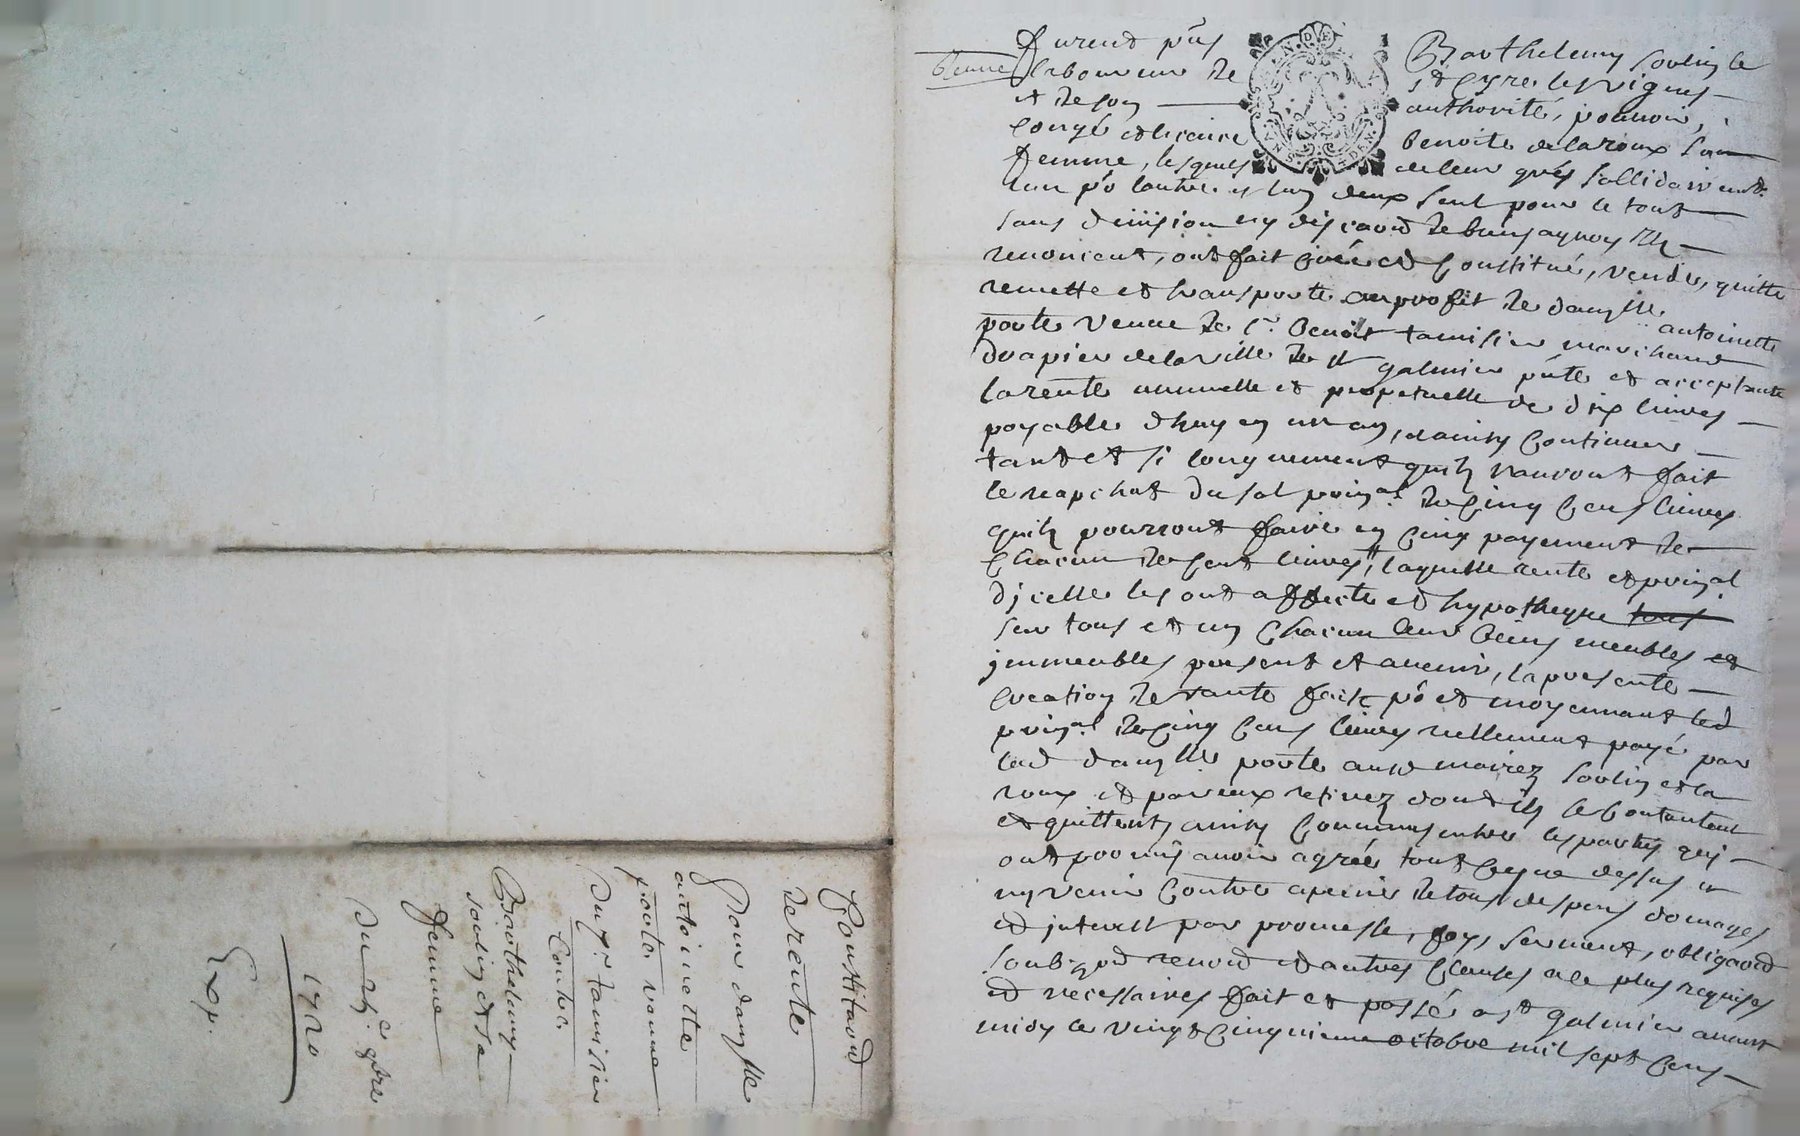 furent pñs Barthelemy soulin le
jeune laboureur de st Cyre les vignes
et de son authorité, pouvoir,
congé et licence benoite delaroux sa
femme, lesquels de leur grés sollidairemt
lun pr lautre et lun deux seul pour le tout
sans division ny discution
renoncent, ont fait créé et Constitué, vendu, quitte
remette et transporte au profit de damlle
antoinette
poute veuve de sr. Benoist tamisier marchand
drapier de la ville de st galmier pñte et acceptante
la rente annuelle et perpetuelle de dix livres
payable dhuy en un an, et ainsy Continuer
tant et si longuement quils nauront fait
le rapchat du sol prinal de Cinq Cens livres
quils pourront faire en Cinq payement de
Chacun de Cent livres, laquelle rente et prinal
dicelle les ont affecte et hypotheque tous
sur tous et un Chacun leur biens meubles et
jmmeubles present et avenir, la presente
Creation de rante faitte pr et moyennant led
prinal de Cinq Cens livres reellement payé par
lad damlle poute ausd mariez soulin et la
roux et par eux retirez dont ils se Contantent
et quittent, ainsy Convenu entre les parties qui
ont promis avoir agreé tout Ceque dessus et
ny venir Contre a peine de tous despens domages
et jnterest par promesse, foy, serment, obligaon
soub. renon et autres Clauses a ce plus requises
et necessaires fait et passé a st galmier avant
midy le vingt Cinquieme octobre mil sept Cens
Constituon
de rente
Pour damlle
antoinette
poute veuve
du sr. tamisier
Contre
Barthelemy
soulin et sa
femme
Du 25e. 8bre
1720
Exp.